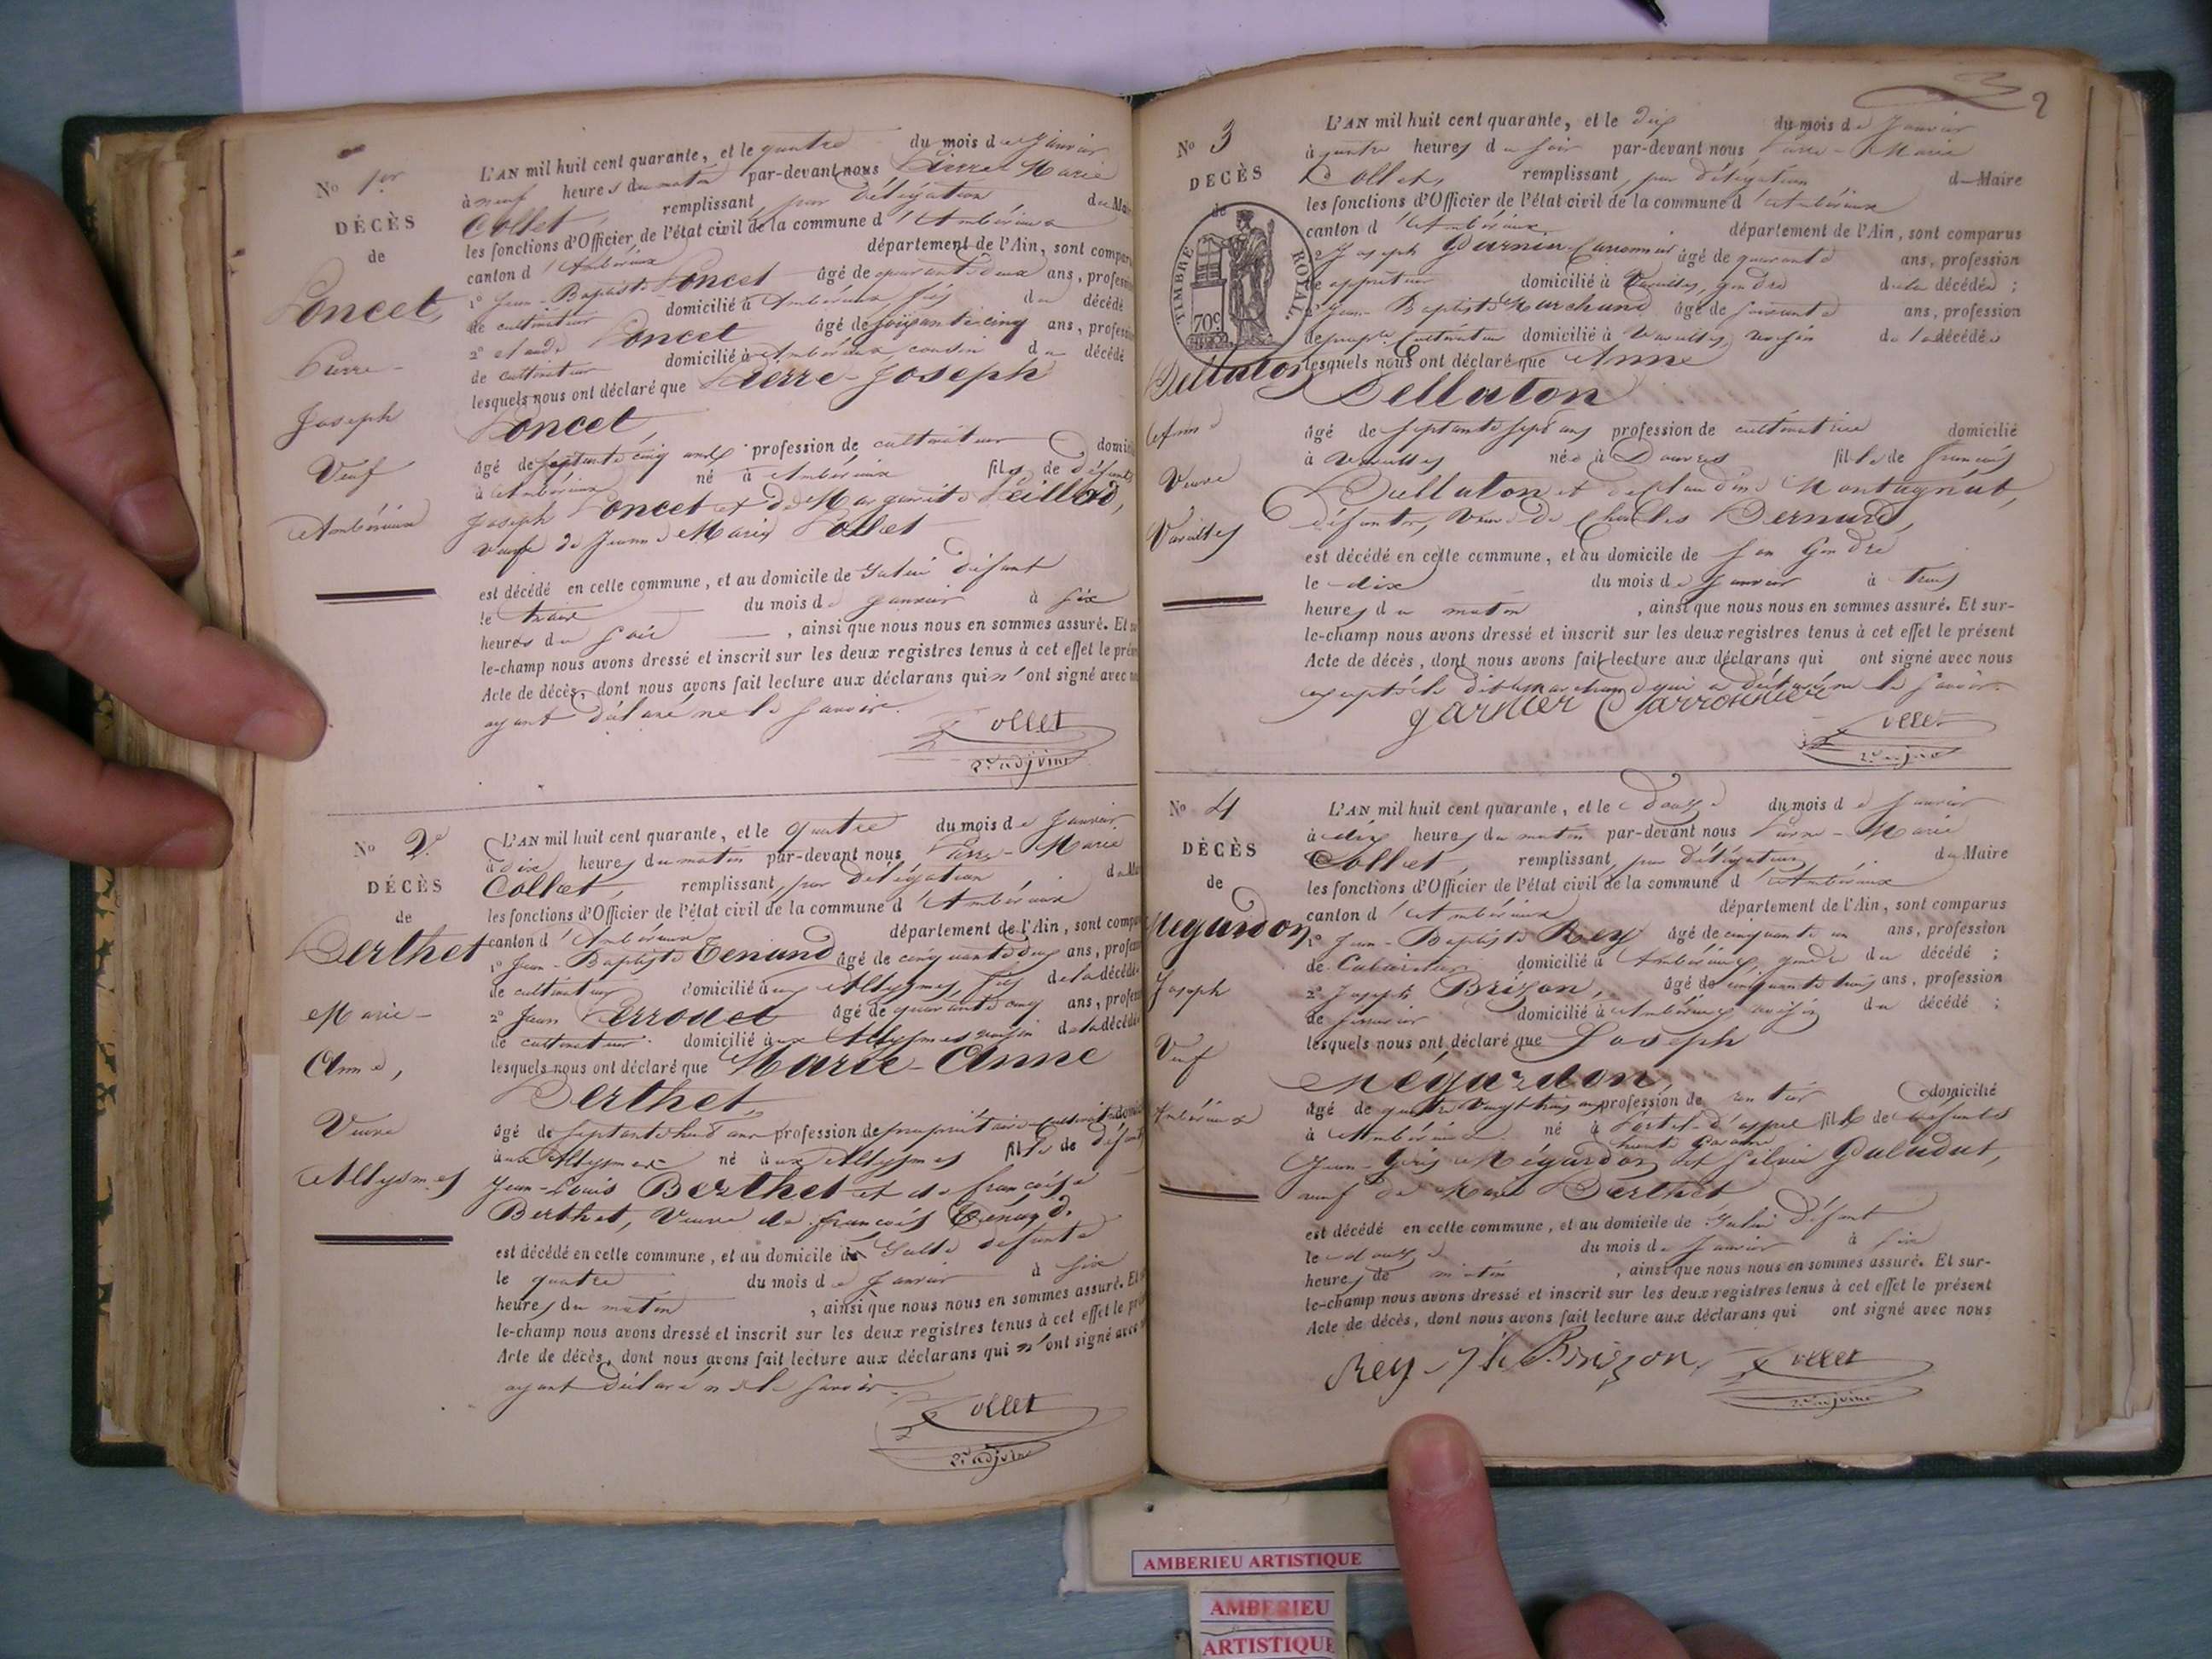 No 1er
DÉCÈS
de
Poncet
Pierre-
Joseph
Veuf
Ambérieux
L'AN mil huit cent quarante, et le quatre du mois de Janvier
à neuf heures du matin par-devant nous Pierre Marie
Collet, remplissant, par Délégation du Ma
les fonctions d'Officier de l'état civil de la commune d'Ambérieux
canton d'Ambérieux département de l'Ain, sont compar
1° Jean-Baptiste Poncet âgé de quarante deux ans, profess
de cultivateur domicilié à Ambérieux, fils du décédé
2° Claude Poncet âgé de soixante cinq ans, profess
de cultivateur domicilié à Ambérieux, cousin du décédé
lesquels nous ont déclaré que Pierre-Joseph
Poncet,
âgé de septante cinq ans profession de cultivateur domici
à Ambérieux né à Ambérieux fils de défunts
Joseph Poncet et de Marguerite
veuf de Jeanne Marie Collet
est décédé en celle commune, et au domicile de défunt
le trois du mois de Janvier à six
heures du soir, ainsi que nous nous en sommes assuré. Et su
le-champ nous avons dressé et inscrit sur les deux registres tenus à cet effet le prés
Acte de décès, dont nous avons fait lecture aux déclarans qui n'ont signé avec n
ayant déclaré ne le savoir.
Collet
2e adjoint
No 2.
DÉCÈS
de
Berthet
Marie-
Anne,
Veuve
Allysmes
L'AN mil huit cent quarante, et le quatre du mois de Janvier
à dix heures du matin par-devant nous Pierre-Marie
Collet, remplissant, par Délégation du Ma
les fonctions d'Officier de l'état civil de la commune d'Ambérieux
canton d'Ambérieux département de l'Ain, sont compa
1° Jean-Baptiste Tenand âgé de cinquante deux ans, profes
de cultivateur domicilié aux Allysmes, fils de la décédée
2° Jean Perrodet âgé de quarante cinq ans, profes
de cultivateur domicilié aux Allysmes voisin de la décédée
lesquels nous ont déclaré que Marie-Anne
Berthet,
âgé de septante huit ans profession de propriétaire cultivatrice domi
aux Allysmes né aux Allysmes fille de défunt
Jean-Louis Berthet et de françoise
Berthet, Veuve de françois Tenand.
est décédé en celle commune, et au domicile de défunte
le quatre du mois de Janvier à six
heures du matin, ainsi que nous nous en sommes assuré. Et
le-champ nous avons dressé et inscrit sur les deux registres tenus à cet effet le pré
Acte de décès, dont nous avons fait lecture aux déclarans qui n'ont signé avec n
ayant déclaré ne le savoir.
Collet
2e adjoint
2
No 3
DECÈS
de
TIMBRE ROYAL.
70c
Dellaton
Anne
Veuve
Vareilles
L'AN mil huit cent quarante, et le dix du mois de Janvier
à quatre heures du soir par-devant nous Pierre-Marie
Collet, remplissant, par Délégation du Maire
les fonctions d'Officier de l'état civil de la commune d'Ambérieux
canton d'Ambérieux département de l'Ain, sont comparus
Joseph Garnier-Carronnier âgé de quarante ans, profession
de domicilié à Vareilles, gendre de la décédée;
2° Jean Baptiste Marchand âgé de soixante ans, profession
de propre Cultivateur domicilié à Vareilles, voisin de la décédée
lesquels nous ont déclaré que Anne
Dellaton
âgé de septante sept ans profession de cultivatrice domicilié
à Vareilles née à Douvres fille de françois
Dellaton et de Claudine Montagnat,
défunts, Veuve de Charles Bernard,
est décédé en celle commune, et au domicile de son Gendre
le dix du mois de Janvier à trois
heures du matin, ainsi que nous nous en sommes assuré. Et sur-
le-champ nous avons dressé et inscrit sur les deux registres tenus à cet effet le présent
Acte de décès, dont nous avons fait lecture aux déclarans qui ont signé avec nous
excepté le dit Marchand qui a déclaré ne le savoir.
garnier Carronnier
Collet
2e adjoint
No 4
DÉCÈS
de
Mégardon
Joseph
Veuf
Ambérieux
L'AN mil huit cent quarante, et le douze du mois de Janvier
à dix heures du matin par-devant nous Pierre-Marie
Collet, remplissant, par Délégation, du Maire
les fonctions d'Officier de l'état civil de la commune d'Ambérieux
canton d'Ambérieux département de l'Ain, sont comparus
1° Jean-Baptiste Rey âgé de cinquante un ans, profession
de Cabaretier domicilié à Ambérieux, gendre du décédé;
2° Joseph Brizon, âgé de cinquante trois ans, profession
de domicilié à Ambérieux voisin du décédé;
lesquels nous ont déclaré que Joseph
Mégardon,
âgé de quatre vingt trois ans profession de rentier domicilié
à Ambérieux né à fils de défunts
Jean- Mégardon et
veuf de Marie Berthet
est décédé en celle commune, et au domicile de défunt
le douze du mois de Janvier à six
heures de matin, ainsi que nous nous en sommes assuré. Et sur-
le-champ nous avons dressé et inscrit sur les deux registres tenus à cet effet le présent
Acte de décès, dont nous avons fait lecture aux déclarans qui ont signé avec nous
Rey Jh Brizon
Collet
2e adjoint
AMBERIEU ARTISTIQUE
AMBERIEU
ARTISTIQUE